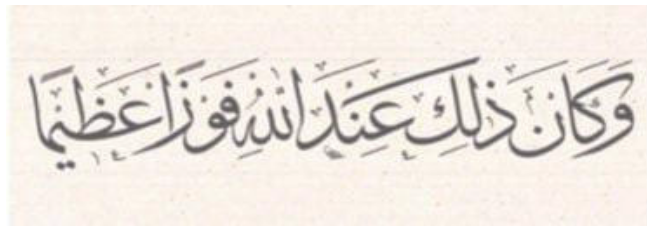 وَكَانَ ذَلِكَ عِنْدَ اللَّهِ فَوْزًا عَظِيمًا